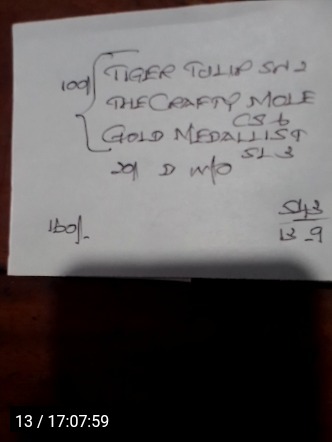 100/ TIGER TULIP SN 2
THE CRAFTY MOLE
CS 6
GOLD MEDALLIST
SL 3
20/ D W/O
160/-
543
13-9
13 / 17:07:59